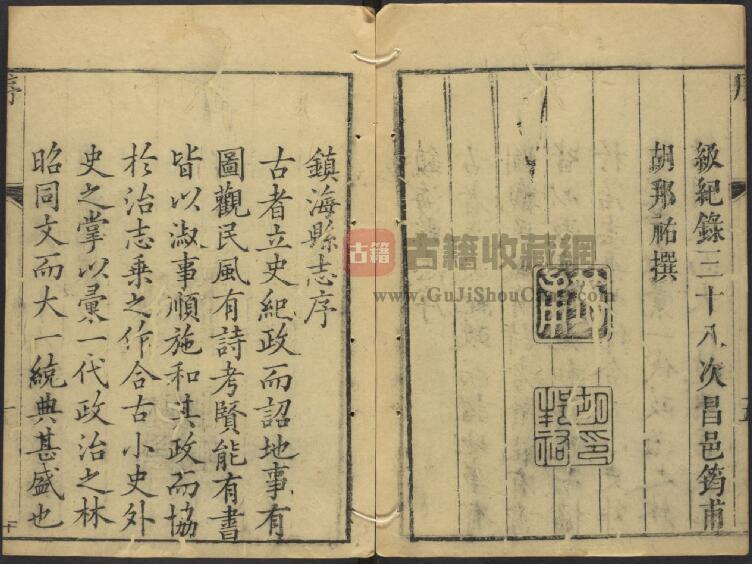 級紀錄三十八次昌邑筠甫
胡邦祐撰
鎮海縣志序
古者立史紀政而詔地事有
圖觀民風有詩考賢能有書
皆以淑事順施和其政而協
於治志乘之作合古小史外
史之掌以彚一代政治之林
昭同文而大一統典甚盛也
序
一
古籍
古籍收藏網